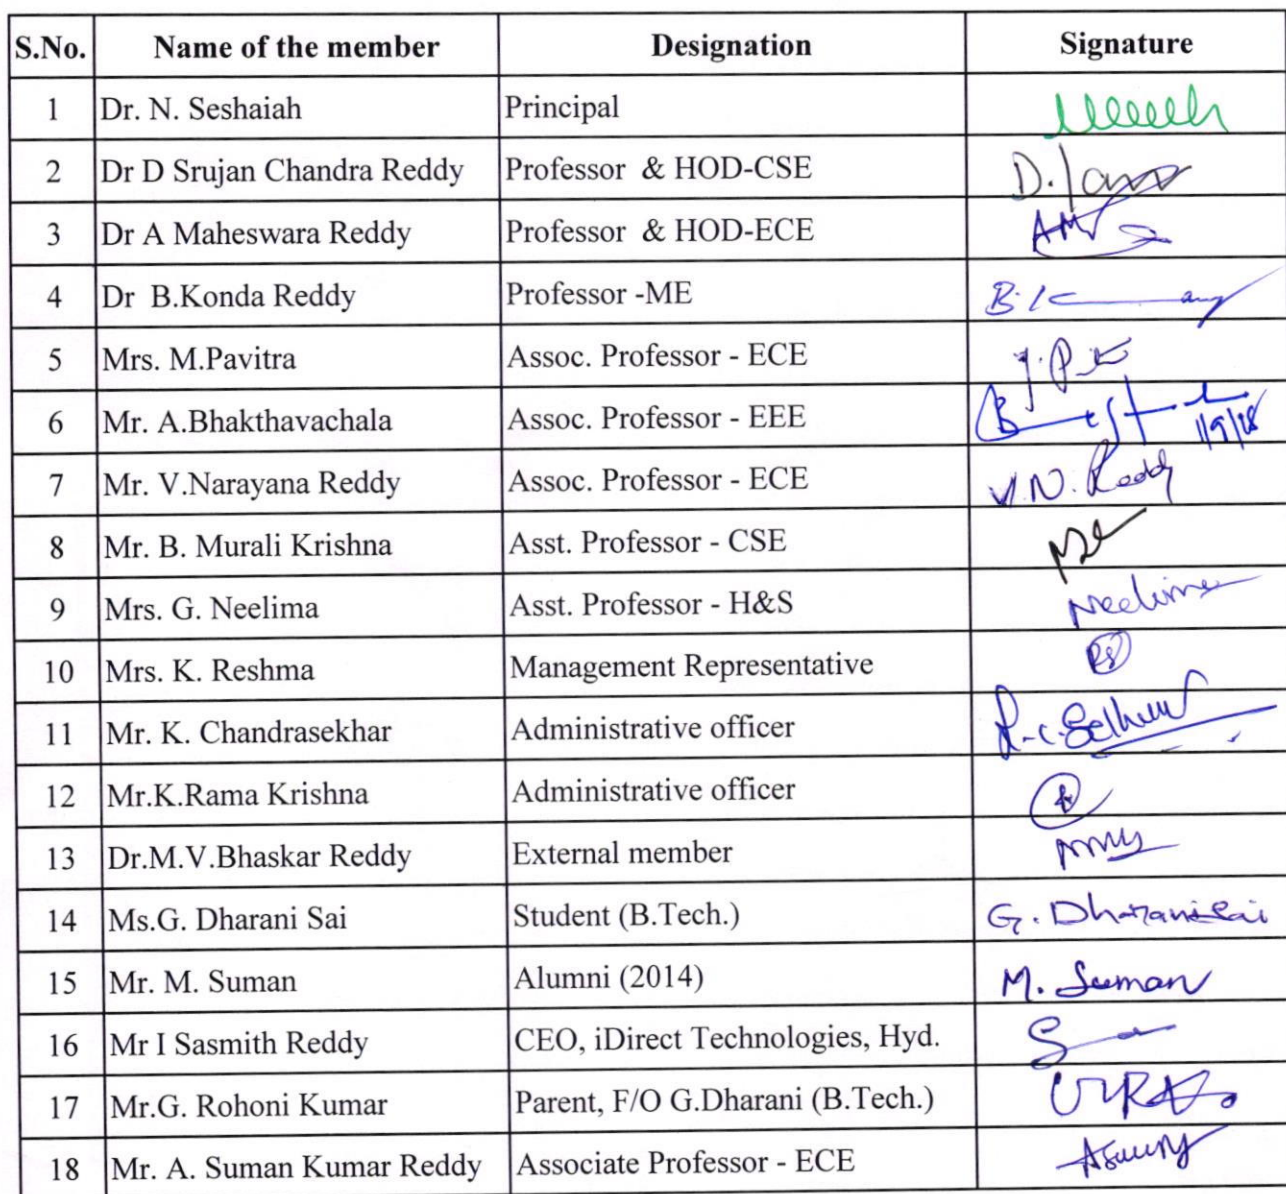 S.No. Name of the member Designation Signature
1 Dr. N. Seshaiah Principal
2 Dr D Srujan Chandra Reddy Professor & HOD-CSE
3 Dr A Maheswara Reddy Professor & HOD-ECE
4 Dr B.Konda Reddy Professor -ME
5 Mrs. M.Pavitra Assoc. Professor - ECE
6 Mr. A.Bhakthavachala Assoc. Professor - EEE 1/9/18
7 Mr. V.Narayana Reddy Assoc. Professor - ECE V.N. Reddy
8 Mr. B. Murali Krishna Asst. Professor - CSE
9 Mrs. G. Neelima Asst. Professor - H&S Neelima
10 Mrs. K. Reshma Management Representative
11 Mr. K. Chandrasekhar Administrative officer
12 Mr.K.Rama Krishna Administrative officer
13 Dr.M.V.Bhaskar Reddy External member
14 Ms.G. Dharani Sai Student (B.Tech.) G. Dharanisai
15 Mr. M. Suman Alumni (2014) M. Suman
16 Mr I Sasmith Reddy CEO, iDirect Technologies, Hyd.
17 Mr.G. Rohoni Kumar Parent, F/O G.Dharani (B.Tech.)
18 Mr. A. Suman Kumar Reddy Associate Professor - ECE